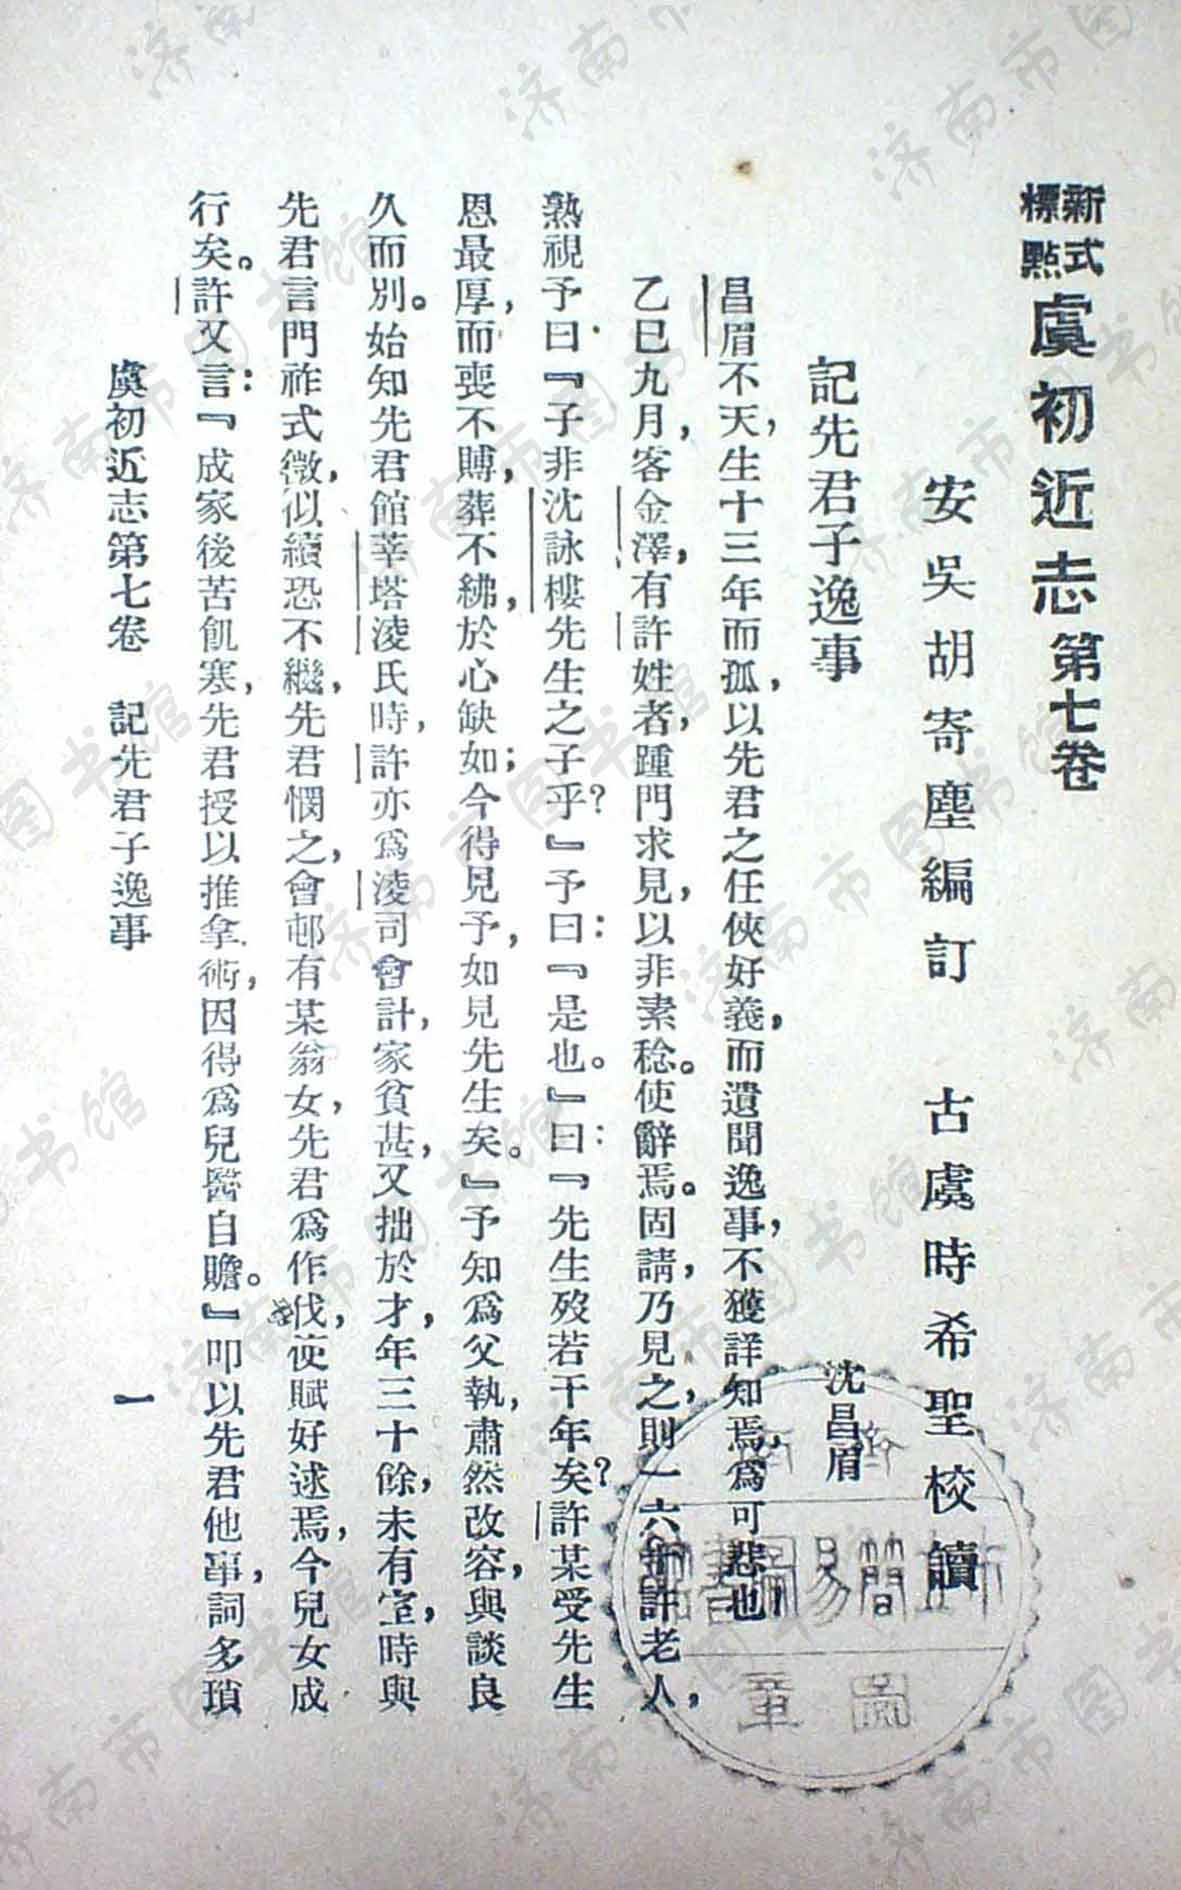 新式標點 虞初近志第七卷
安吳胡寄塵編訂　古虞時希聖校讀
記先君子逸事　沈昌眉
昌眉不天，生十三年而孤，以先君之任俠好義，而遺聞逸事，不獲詳知焉，爲可悲也！
乙巳九月，客金澤，有許姓者，踵門求見，以非素稔。使辭焉。固請，乃見之，則一六十許老人，
熟視予曰『子非沈詠樓先生之子乎？』予曰：『是也。』曰：『先生歿若干年矣？許某受先生
恩最厚，而喪不賻，葬不紼，於心缺如；今得見予，如見先生矣。』予知爲父執，肅然改容，與談良
久而別。始知先君館莘塔凌氏時，許亦爲凌司會計，家貧甚，又拙於才，年三十餘，未有室，時與
先君言門祚式微，似續恐不繼，先君憫之，會邨有某翁女，先君爲作伐，使賦好逑焉，今兒女成
行矣。許又言：『成家後苦飢寒，先君授以推拿術，因得爲兒醫自贍。』叩以先君他事，詞多瑣
虞初近志第七卷　記先君子逸事　一
濟南市圖书馆